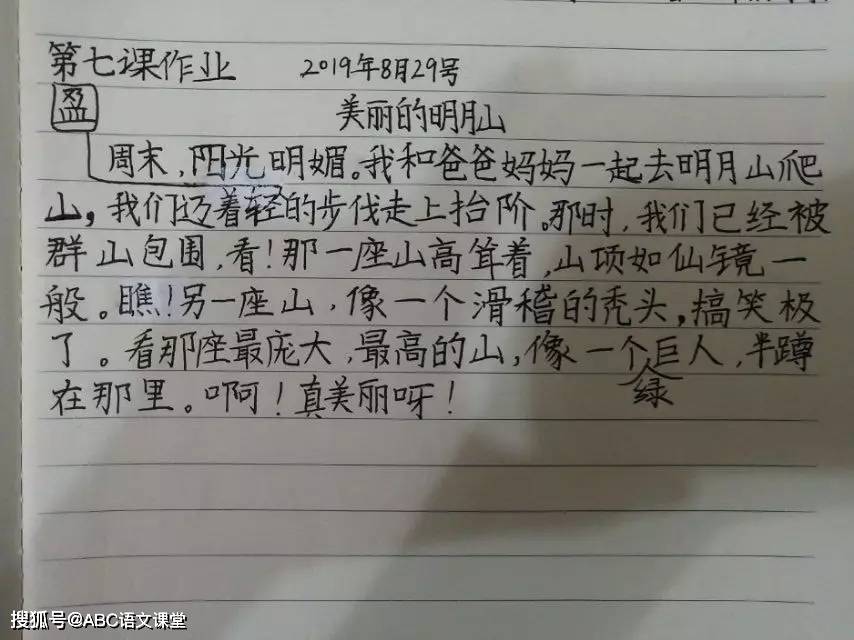 第七课作业 2019年8月29号
盈 美丽的明月山
周末,阳光明媚。我和爸爸妈妈一起去明月山爬
山,我们迈着轻的步伐走上抬阶。那时,我们已经被
群山包围,看!那一座山高耸着,山项如仙镜一
般。瞧!另一座山,像一个滑稽的秃头,搞笑极
了。看那座最庞大、最高的山,像一个绿巨人,半蹲
在那里。啊!真美丽呀!
搜狐号@ABC语文课堂